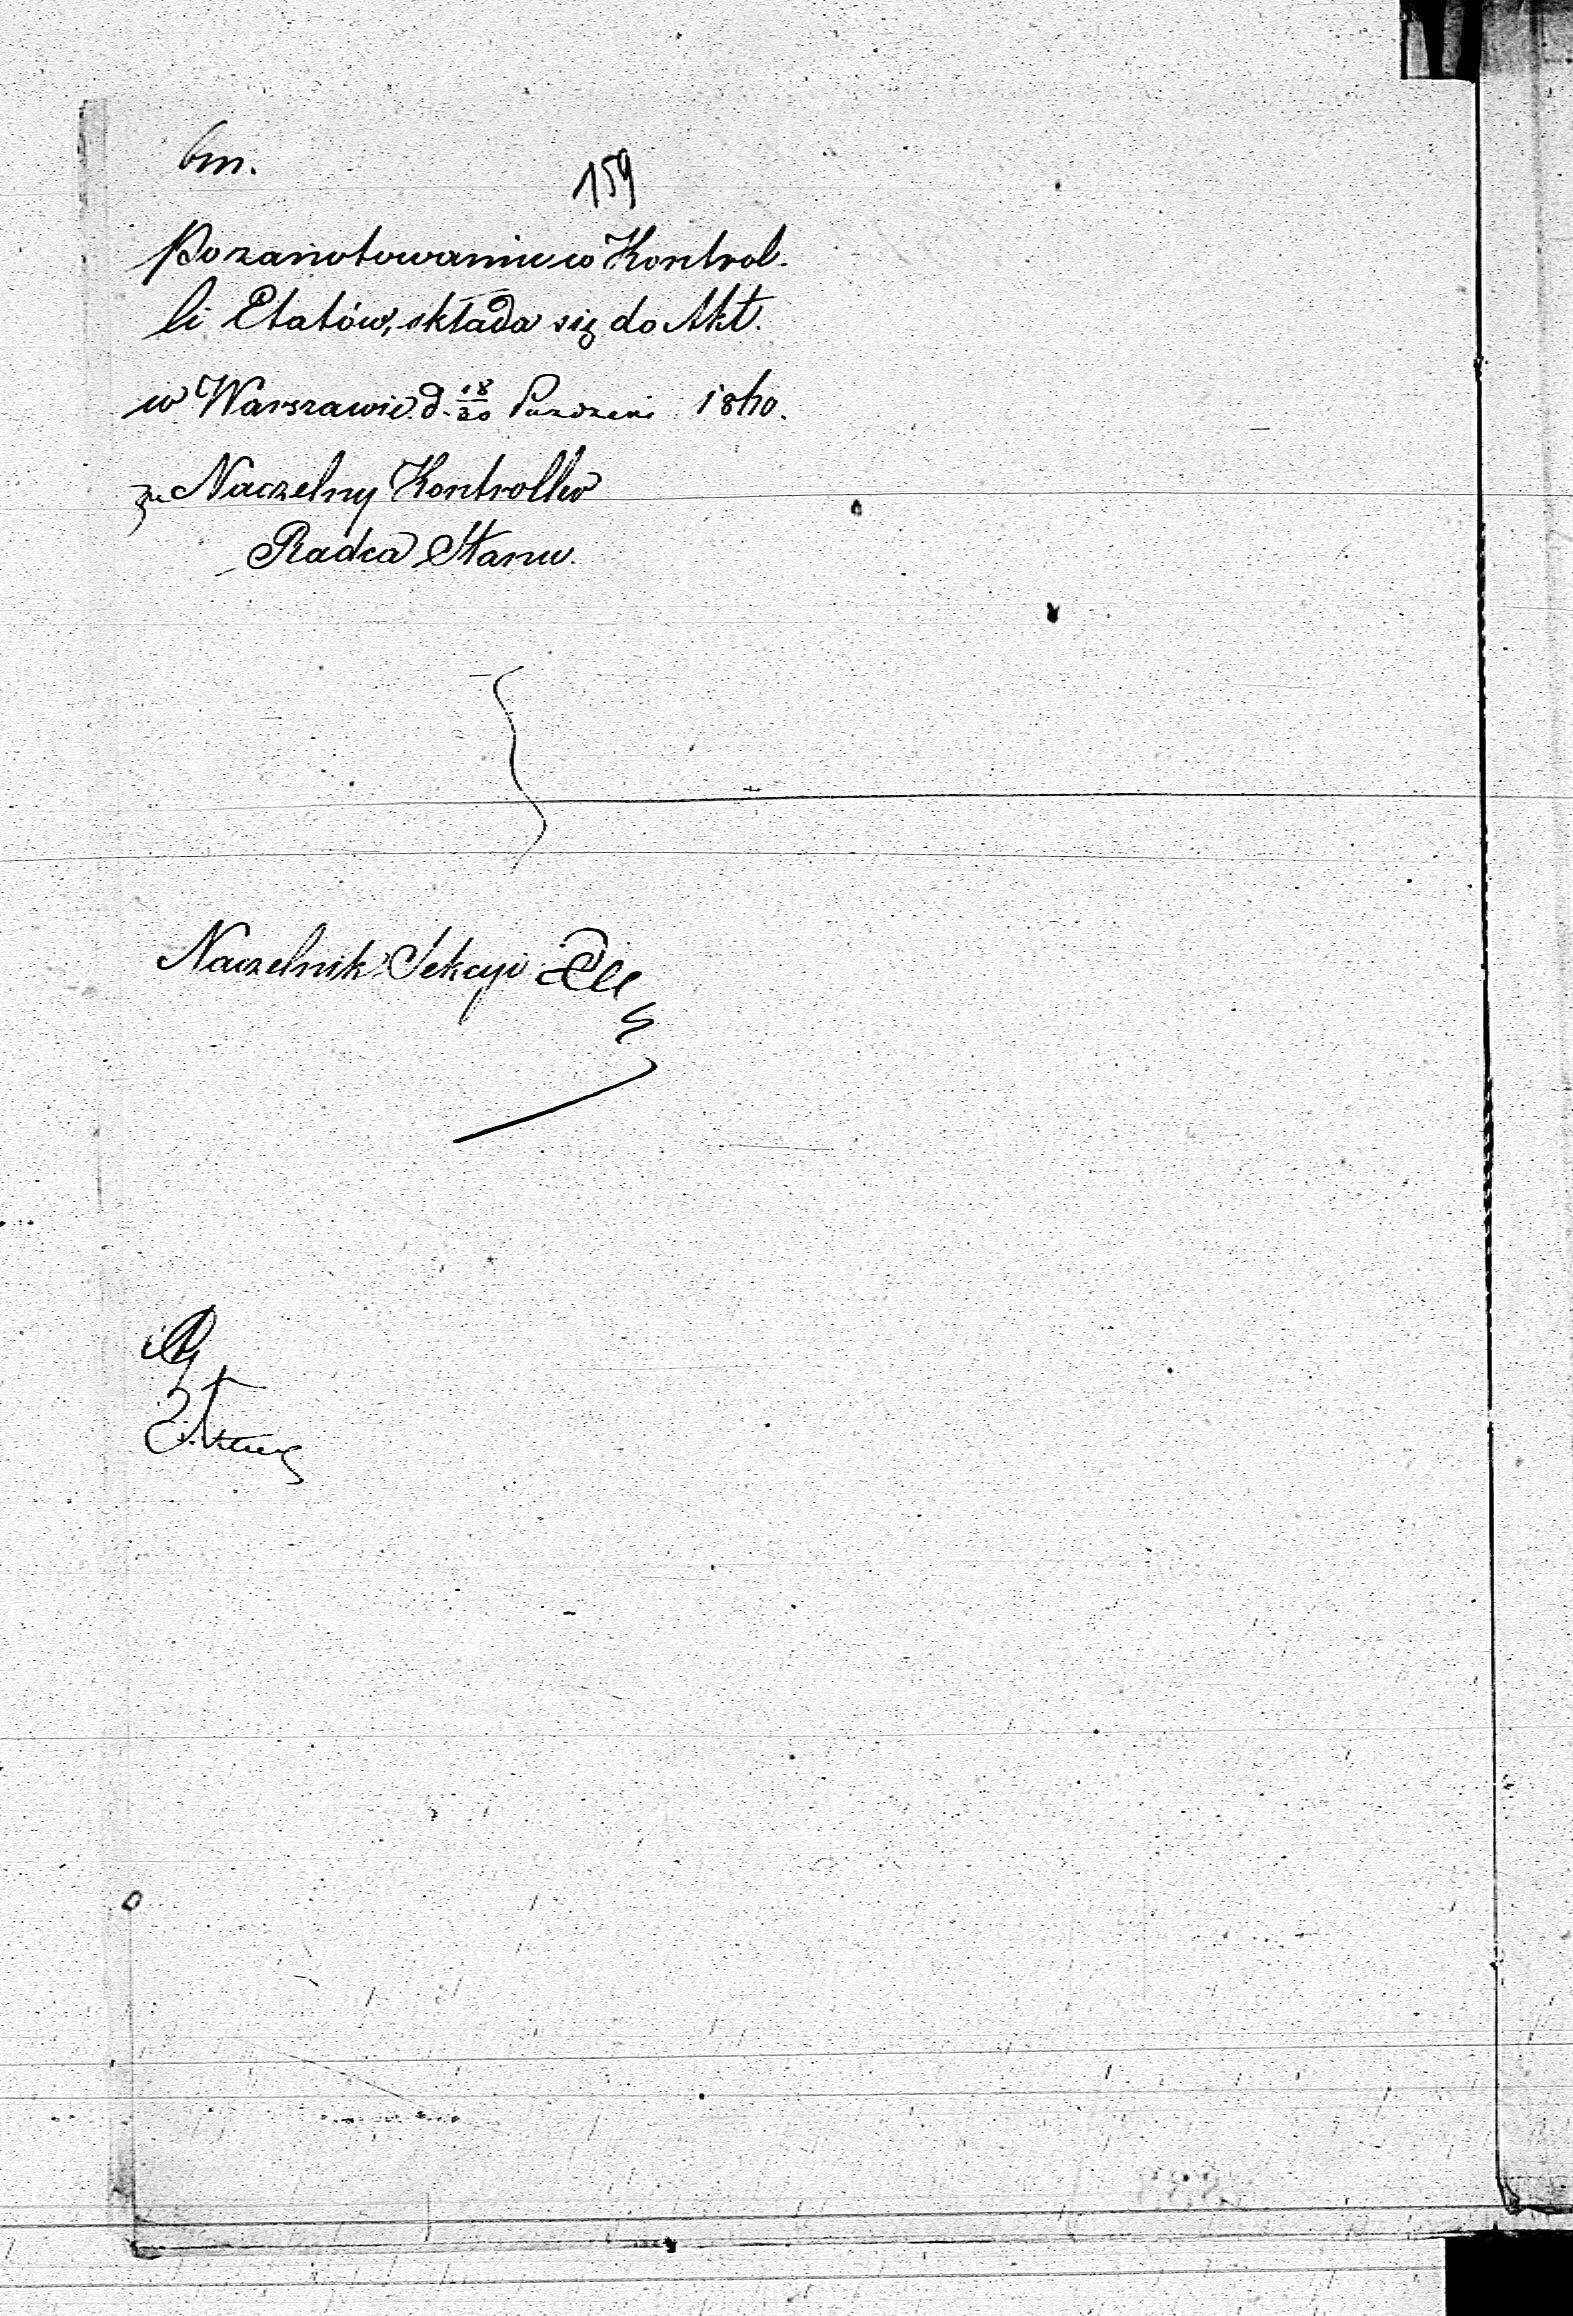 bm.
159
Po zanotowaniu w Kontrol-
li Etatów, składa się do Akt.
w Warszawie d. 18/30 Paździer 1860.
za Naczelny Kontroller
Radca Stanu
Naczelnik Sekcyi